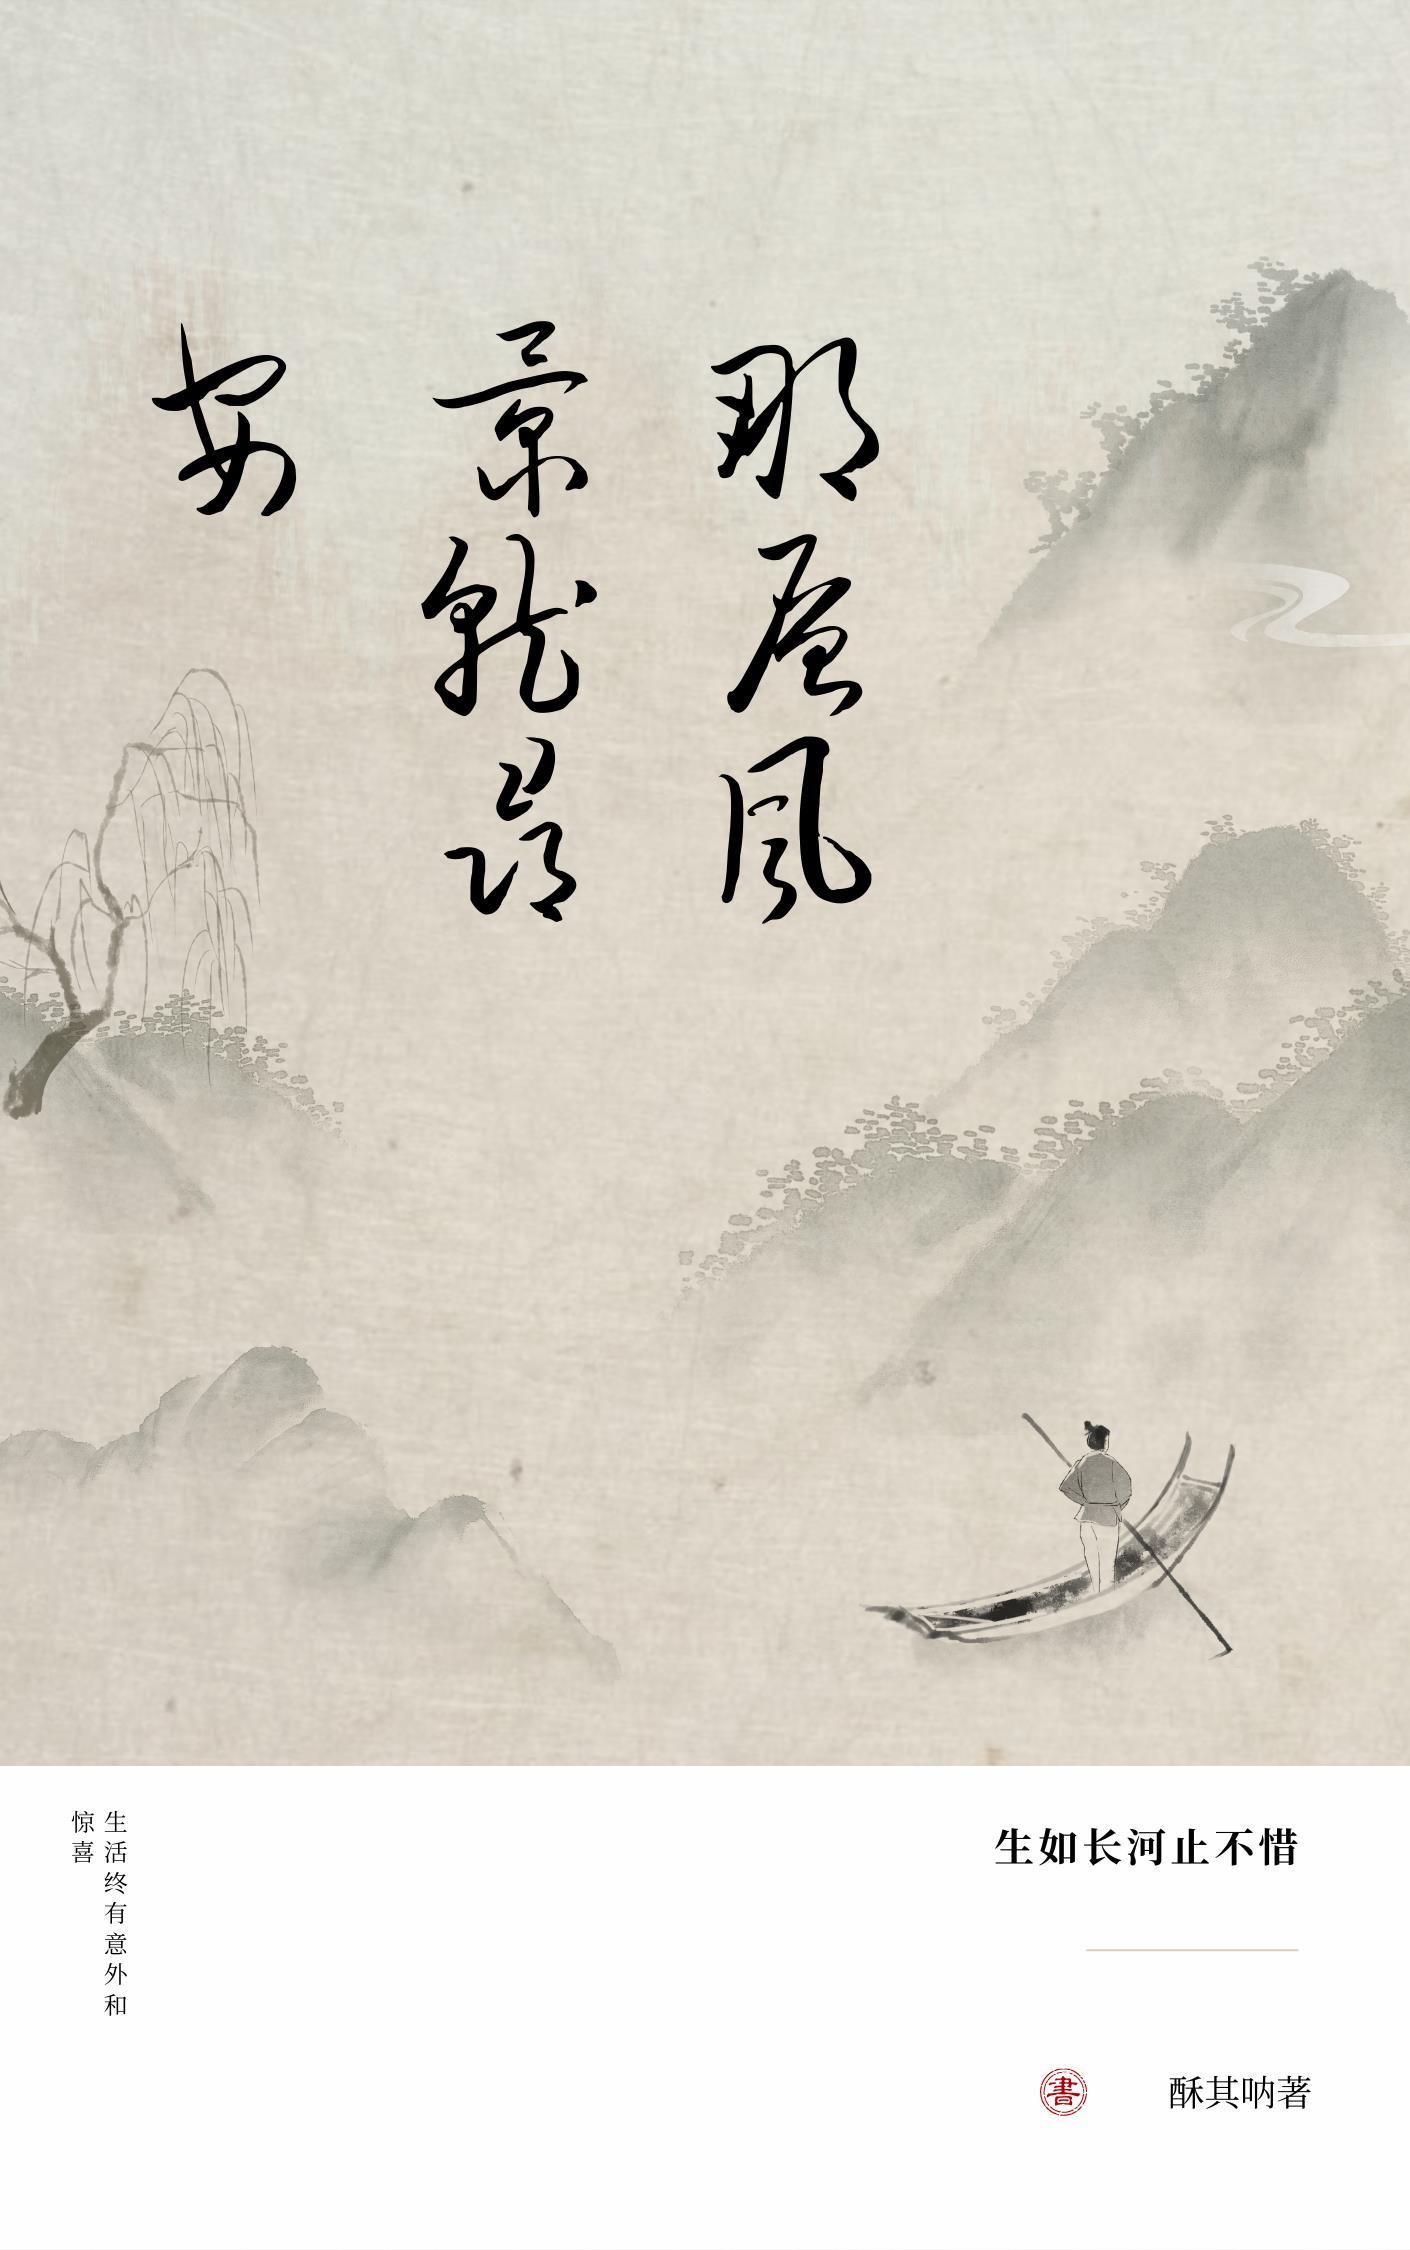 那風
景就尋
安
生活终有意外和
惊喜
生如长河止不惜
書
酥其呐著